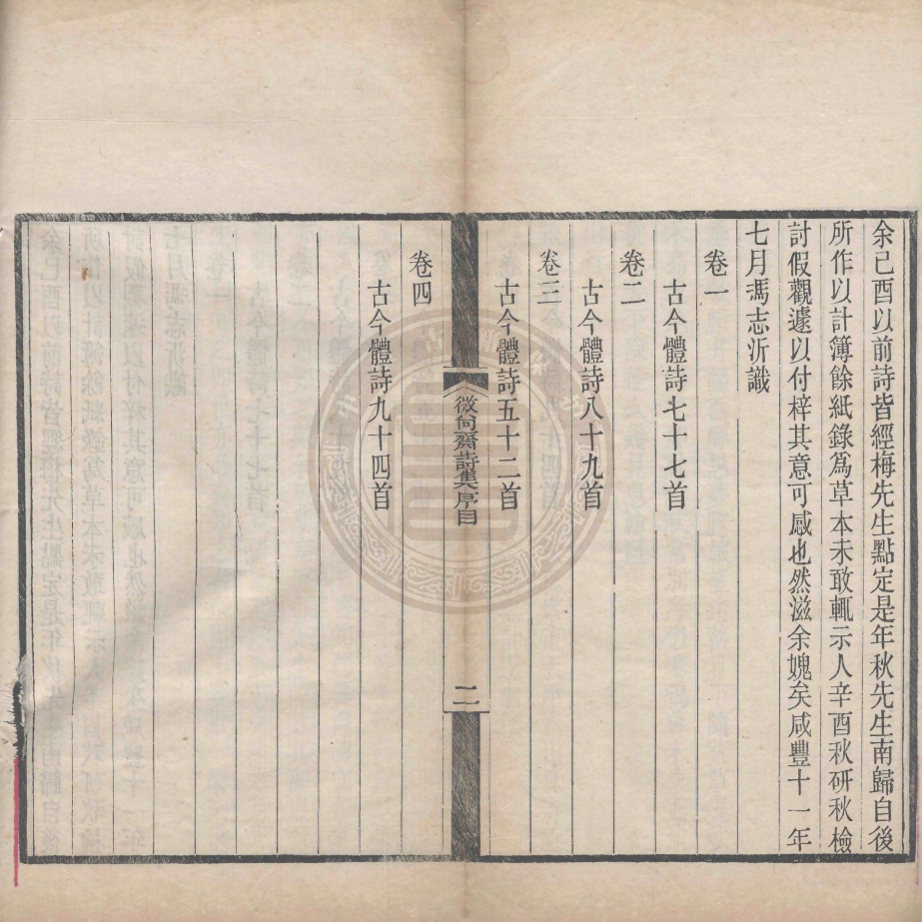 余己酉以前詩皆經梅先生點定是年秋先生南歸自後
所作以計簿餘紙錄爲草本未敢輒示人辛酉秋硏秋檢
討假觀遽以付梓其意可感也然滋余媿矣咸豐十一年
七月馮志沂識
卷一
古今體詩七十七首
卷二
古今體詩八十九首
卷三
古今體詩五十二首
微尙齋詩集序目
二
卷四
古今體詩九十四首